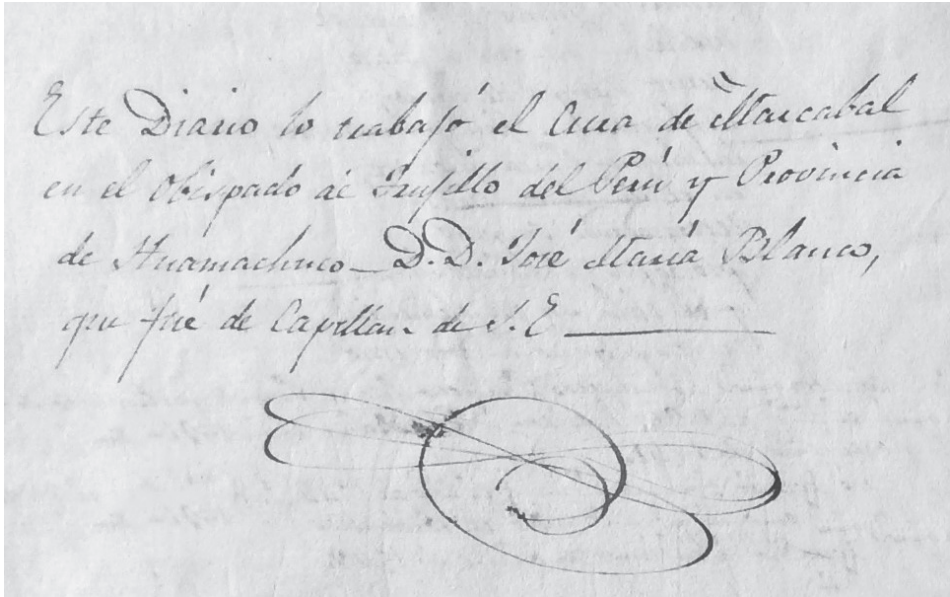 Este Diario lo trabajó el Cura de Marcabal
en el Obispado de Trujillo del Perú y Provincia
de Huamachuco_ D.D. José María Blanco,
que fué de Capellan de S.E